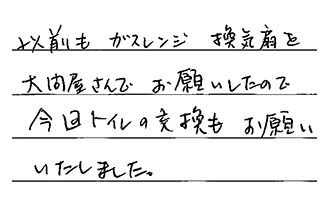 以前も ガスレンジ 換気扇を
大問屋さんで お願いしたので
今回トイレの交換も お願い
いたしました。